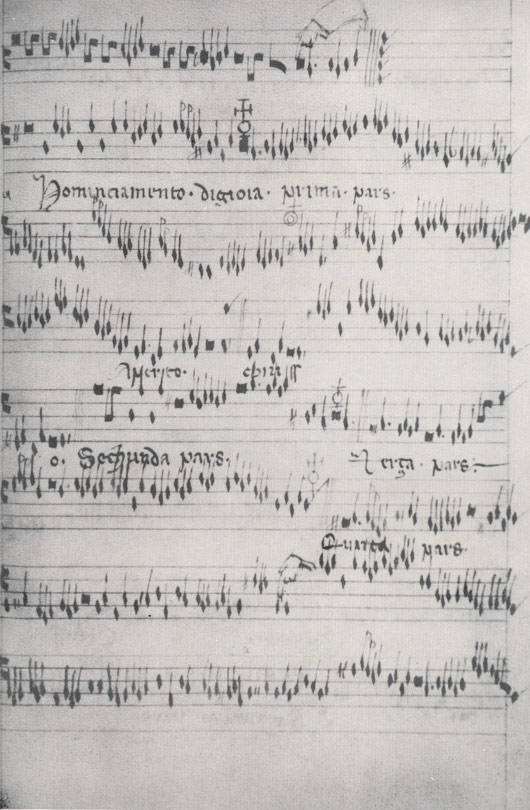 Cominciamento · digioia · prima · pars ·
Aperto · chiuss
o · Sechunda pars ·
Terça · pars
Quarta pars ·